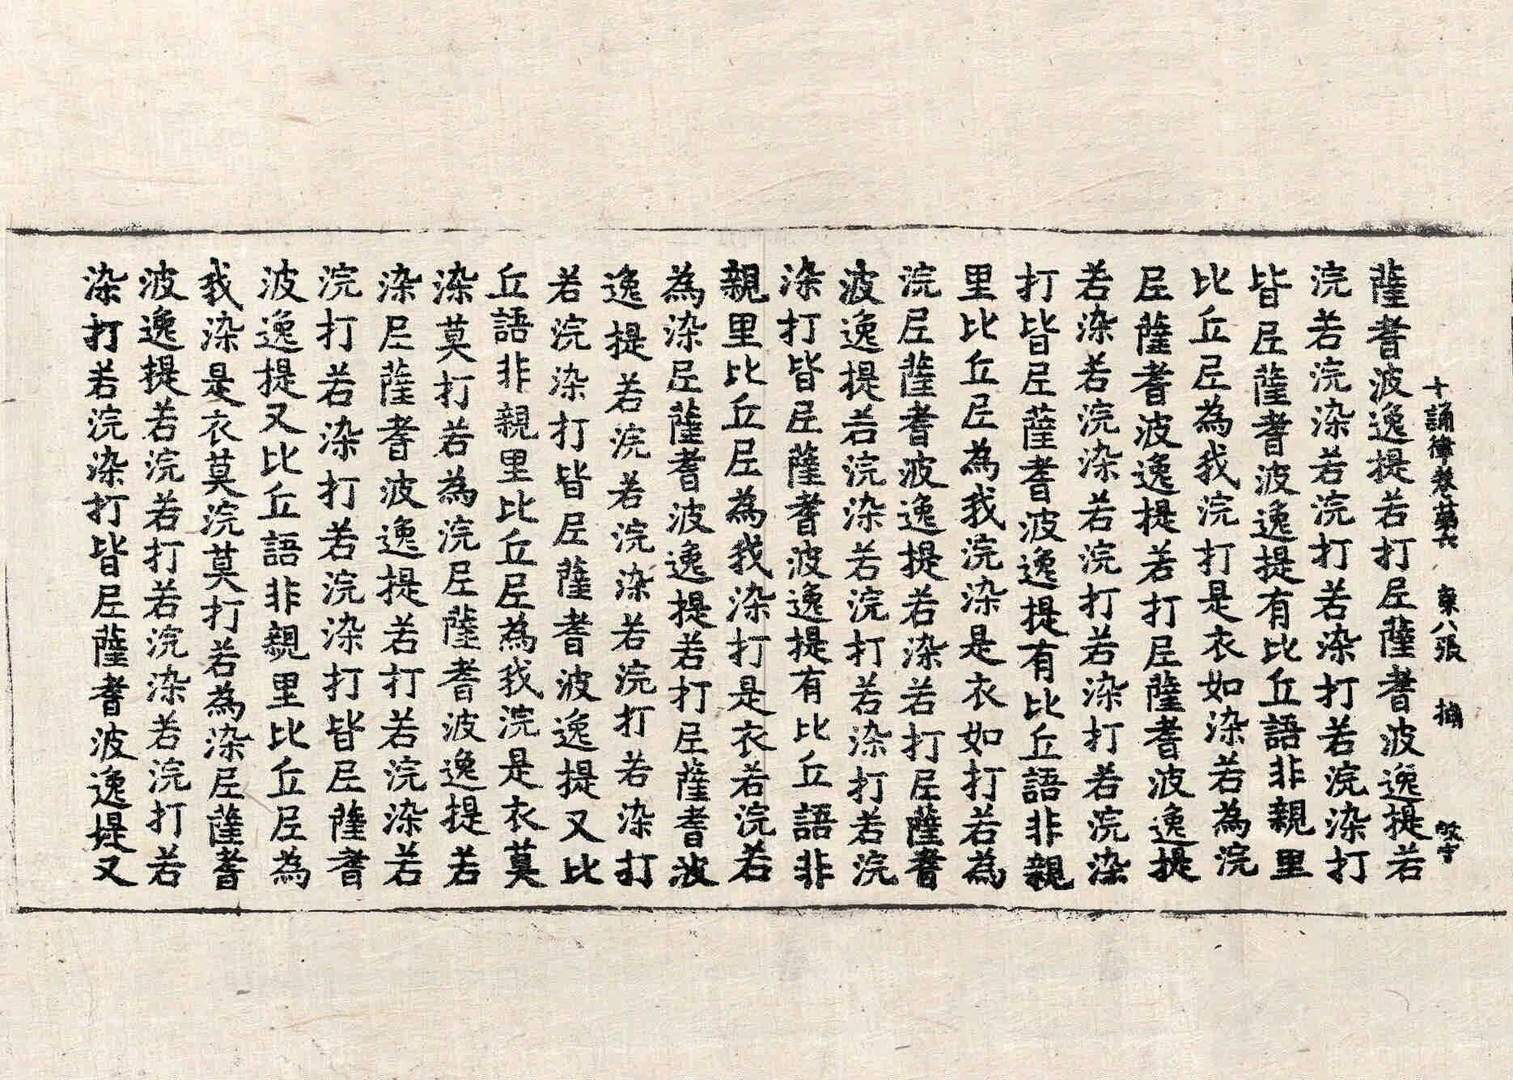 十誦律卷第六 八張
薩耆波逸提若打尼薩耆波逸提若
浣若浣染若浣打若染打若浣染打
皆尼薩耆波逸提有比丘語非親里
比丘尼為我浣打是衣如染若為浣
尼薩耆波逸提若打尼薩耆波逸提
若染若浣染若浣打若染打若浣染
打皆尼薩耆波逸提有比丘語非親
里比丘尼為我浣染是衣如打若為
浣尼薩耆波逸提若染若打尼薩耆
波逸提若浣染若浣打若染打若浣
染打皆尼薩耆波逸提有比丘語非
親里比丘尼為我染打是衣若浣若
為染尼薩耆波逸提若打尼薩耆波
逸提若浣若浣染若浣打若染打
若浣染打皆尼薩耆波逸提又比
丘語非親里比丘尼為我浣是衣莫
染莫打若為浣尼薩耆波逸提若
染尼薩耆波逸提若打若浣染若
浣打若染打若浣染打皆尼薩耆
波逸提又比丘語非親里比丘尼為
我染是衣莫浣莫打若為染尼薩耆
波逸提若浣若打若浣染若浣打若
染打若浣染打皆尼薩耆波逸提又